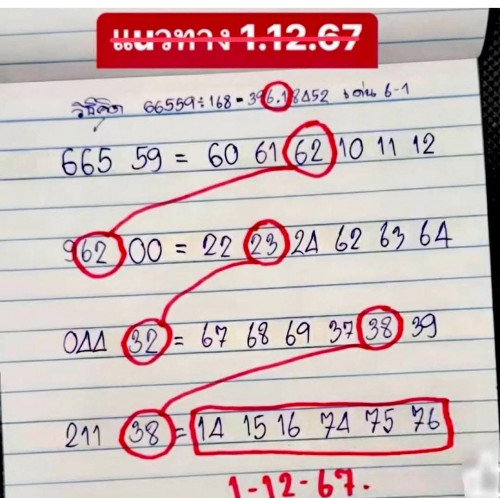 แนวทาง 1.12.67
วิธีคิด 66559÷168=396.18452 เด่น 6-1
665 59 = 60 61 62 10 11 12
962 00 = 22 23 24 62 63 64
044 32 = 67 68 69 37 38 39
211 38 = 14 15 16 74 75 76
1-12-67.